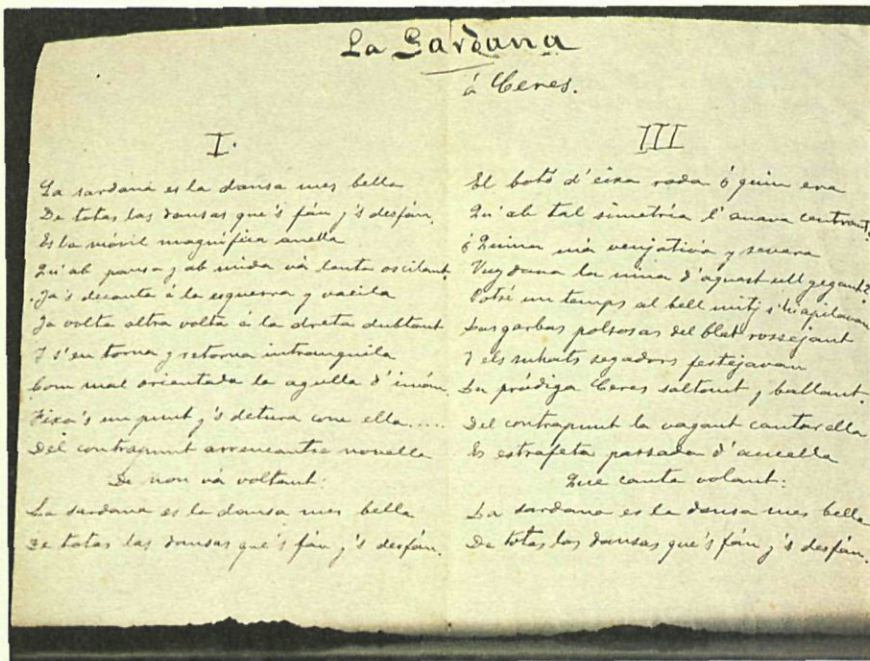 La Sardana
á Ceres.
I.
La sardana es la dansa mes bella
De totas las dansas que's fán y's desfán.
Es la móvil magnífica anella
Qu'ab pausa y ab mida vá lenta oscilant.
Ja's decanta á la esquerra y vacila
Ja volta altra volta á la dreta dubtant
Y s'en torna y retorna intranquila
Com mal orientada la agulla d'imán.
Fixa's un punt y's detura com ella....
Del contrapunt arrencantse novella
De nou vá voltant:
La sardana es la dansa mes bella
De totas las dansas que's fán y's desfán.
III
El botó d'eixa roda ó quin era
Qu'ab tal simetría l'anava centrant?
ó Quina má venjativa y severa
Vuydava la nina d'aquest ull gegant?
Potsé un temps al bell mitj s'hi apilavan
Las garbas polsosas del blat rossejant
Y els suhats segadors festejavan
La pródiga Ceres saltant y ballant.
Del contrapunt la vagant cantarella
Es estrafeta passada d'aucella
Que canta volant:
La sardana es la dansa mes bella
De totas las dansas que's fán y's desfán.